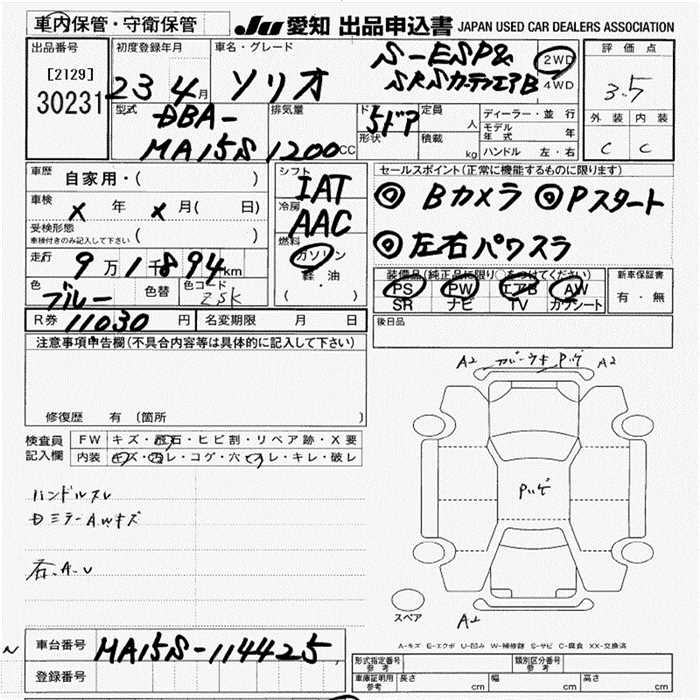 車内保管・守衛保管 JU 愛知 出品申込書 JAPAN USED CAR DEALERS ASSOCIATION
出品番号 初度登録年月 車名・グレード 評価点
[2129]
30231
23 4月 ソリオ S-ESP& SRSカーテンエアB 2WD 4WD
3.5
型式 DBA-MA15S
排気量 1200cc
ドア 形状 5ドア
定員 人
積載 kg
ディーラー・並行
モデル年式 年
ハンドル 左・右
外装 内装
C C
車歴 自家用・( )
車検 X 年 X 月( 日)
受検形態 車検付きのみ記入して下さい ( )
走行 9万1千894km
色 ブルー 色替 色コード ZSK
R券 11030 円 名変期限 月 日
シフト IAT
冷房 AAC
燃料 ガソリン 軽・油 ( )
セールスポイント(正常に機能するものに限ります)
◎ Bカメラ ◎Pスタート
◎ 左右パワスラ
装備品(純正品に限り○をつけてください)
PS PW エアB AW
SR ナビ TV カワシート
新車保証書
有・無
後日品
注意事項申告欄(不具合内容等は具体的に記入して下さい)
修復歴 有 (箇所 )
検査員記入欄
FW キズ・飛石・ヒビ割・リペア跡・X要
内装 キズ・汚レ・コゲ・穴・スレ・キレ・破レ
ハンドルスレ
Dミラー AWキズ
右.A.U
A2 A2
A2
スペア
A-キズ E-エクボ U-凹み W-補修跡 S-サビ C-腐食 XX-交換済
車台番号 MA15S-114425
登録番号
形式指定番号 参考 類別区分番号 参考
車庫証明用 参考 長さ cm 幅 cm 高さ cm